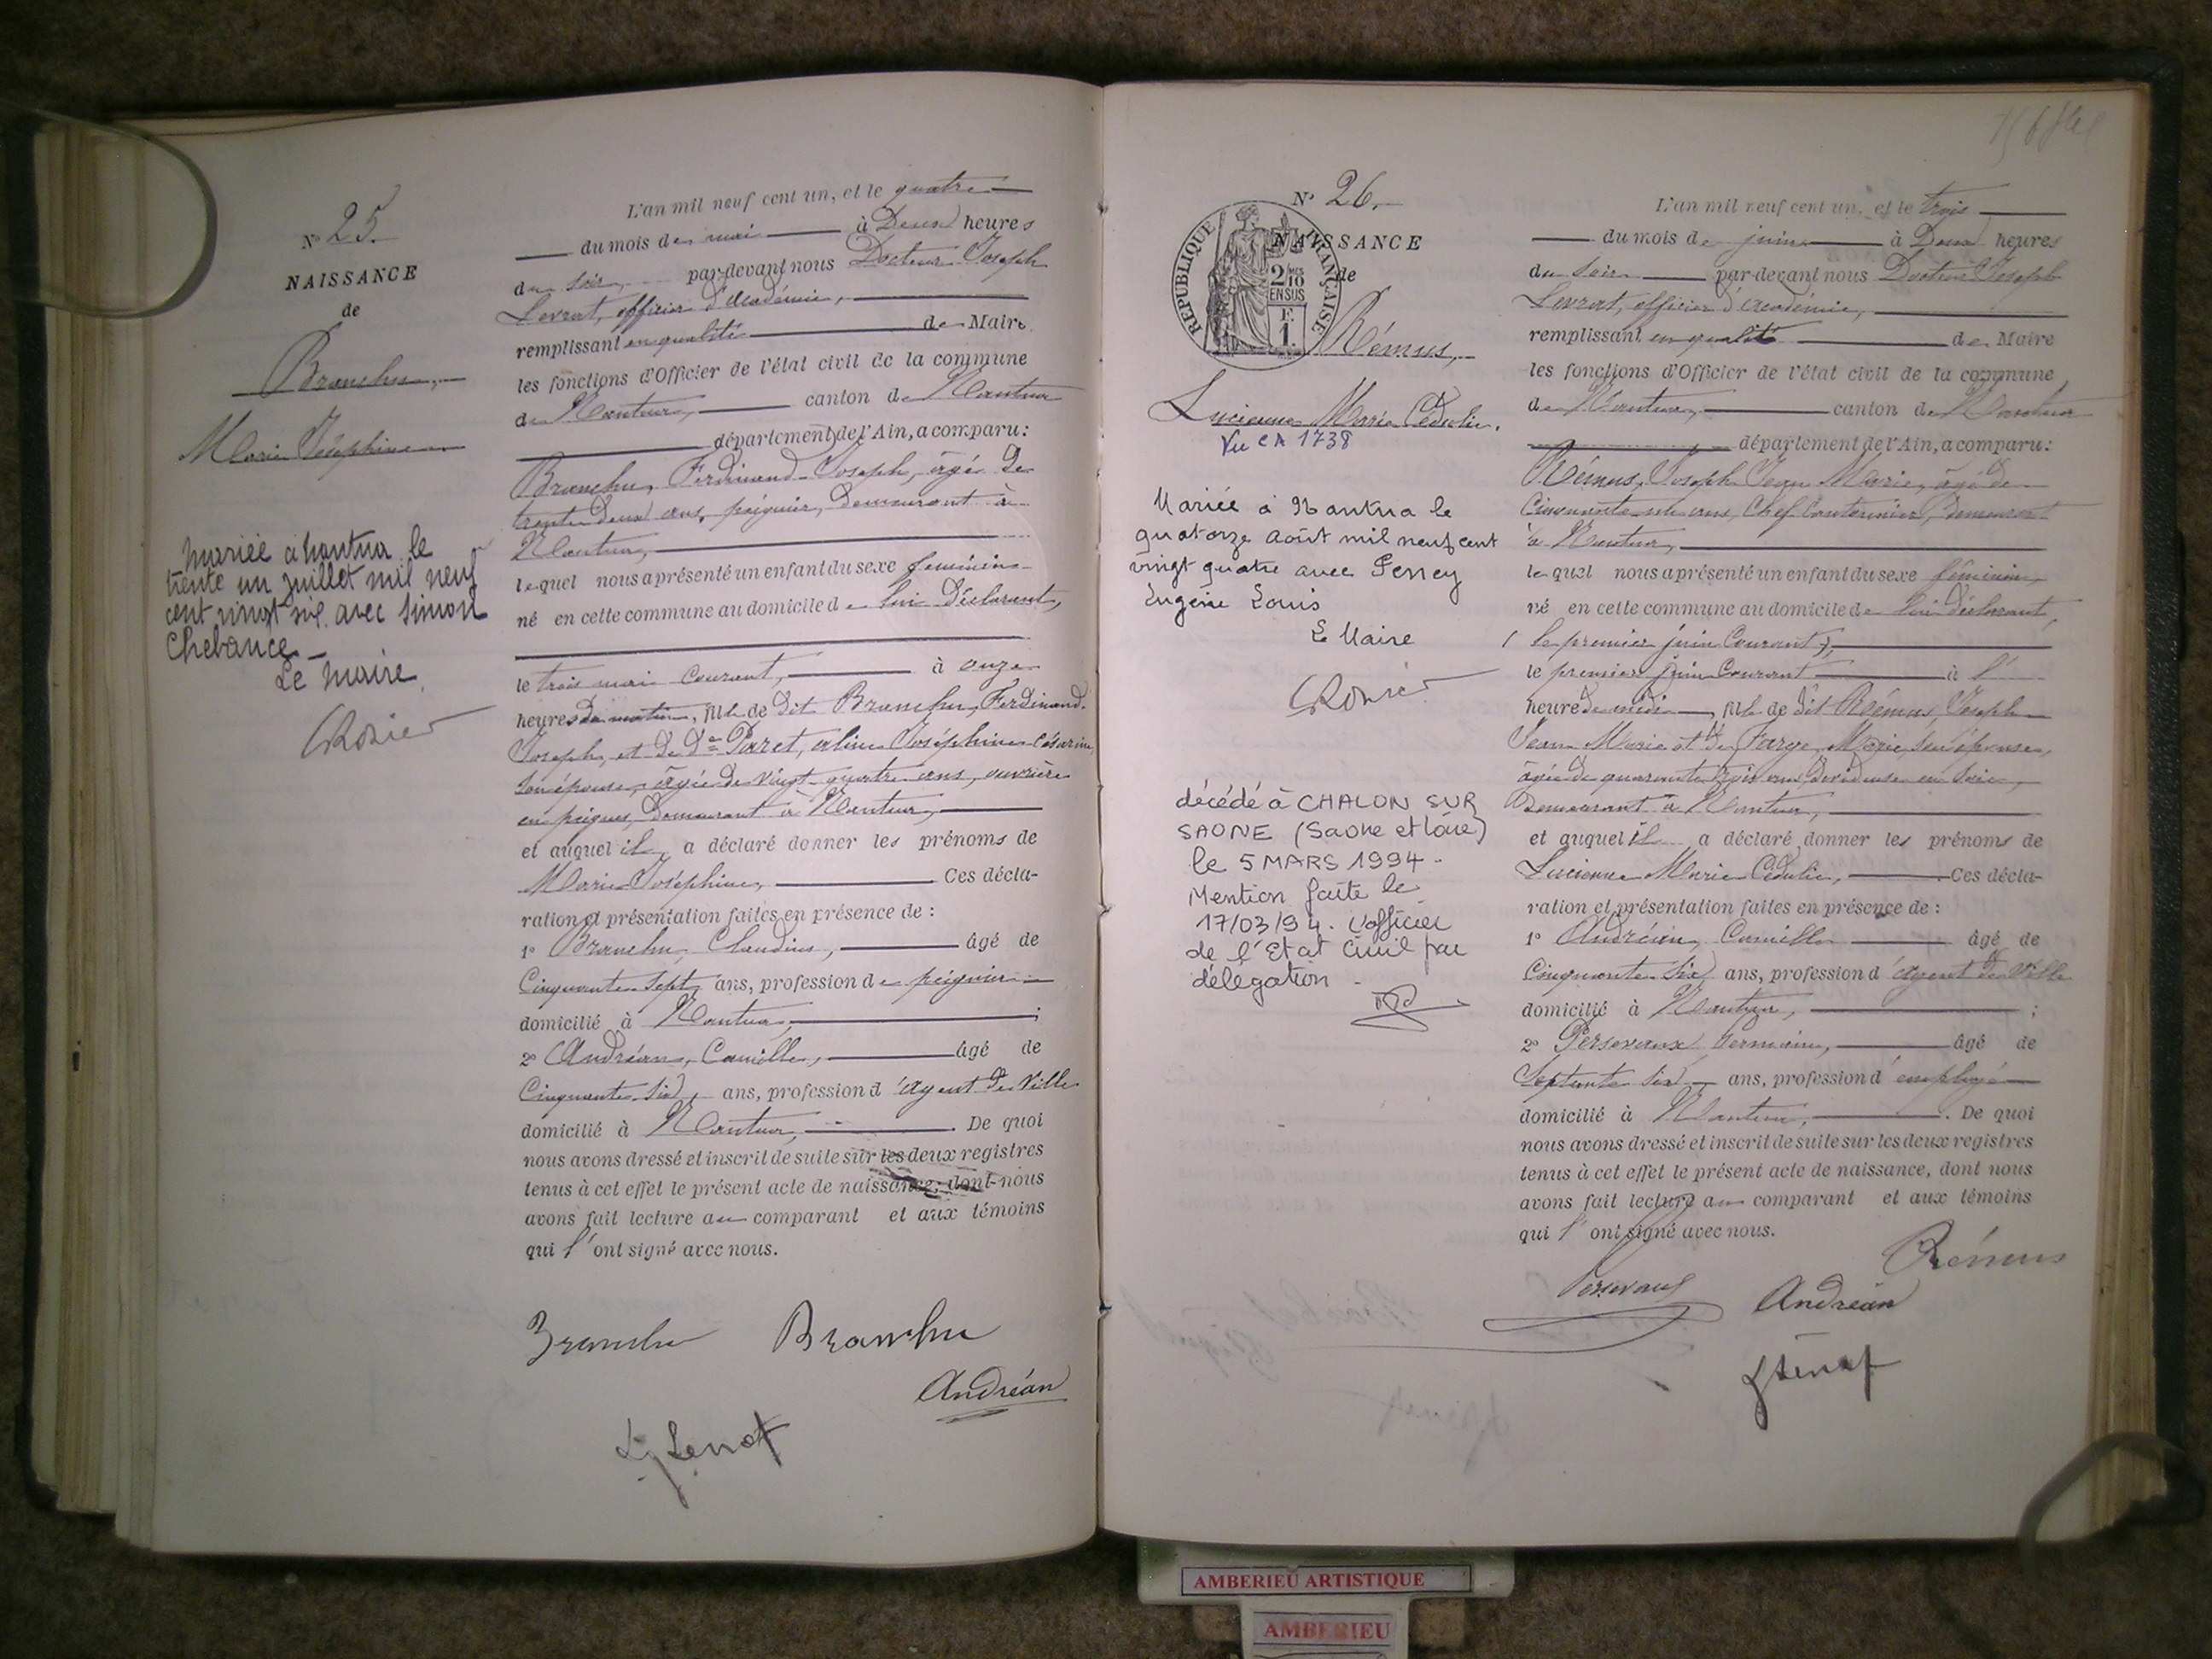 N° 25.
NAISSANCE
de
Branchu,
Marie Joséphine
Mariée à Nantua le
trente un juillet mil neuf
cent vingt six avec Simon
Chebance
Le Maire
L'an mil neuf cent un, et le quatre
du mois de mai à Deux heures
du soir par-devant nous Docteur Joseph
Levrat, officier d'Académie,
remplissant en qualité de Maire
les fonctions d'Officier de l'état civil de la commune
de Nantua, canton de Nantua
département de l'Ain, a comparu:
Branchu, Ferdinand Joseph, âgé de
trente deux ans, peignier, demeurant à
Nantua,
lequel nous a présenté un enfant du sexe féminin
né en cette commune au domicile de lui déclarant,
le trois mai courant, à onze
heures du matin, fille de dit Branchu, Ferdinand
Joseph, et de De Paret, Joséphine Césarine,
son épouse, âgée de vingt quatre ans, ouvrière
en peignes, demeurant à Nantua,
et auquel il a déclaré donner les prénoms de
Marie Joséphine, Ces décla-
ration et présentation faites en présence de :
1° Branchu, Claudius, âgé de
Cinquante sept ans, profession de peignier
domicilié à Nantua, ;
2° Andréan, Camille, âgé de
Cinquante six ans, profession d'agent de ville
domicilié à Nantua, . De quoi
nous avons dressé et inscrit de suite sur les deux registres
tenus à cet effet le présent acte de naissance, dont nous
avons fait lecture au comparant et aux témoins
qui l'ont signé avec nous.
Branchu Branchu
Andréan
N° 26.
NAISSANCE
de
REPUBLIQUE FRANÇAISE
2/10
EN SUS
F.
1.
Rémus,
Lucienne Marie
Vu CA 1738
Mariée à Nantua le
quatorze août mil neuf cent
vingt quatre avec Perrey
Eugène Louis
Le Maire
décédé à CHALON SUR
SAONE (Saone et Loire)
le 5 MARS 1994 -
Mention faite le
17/03/94. L'officier
de l'Etat Civil par
délégation -
L'an mil neuf cent un, et le trois
du mois de juin à Deux heures
du soir par-devant nous Docteur Joseph
Levrat, officier d'Académie,
remplissant en qualité de Maire
les fonctions d'Officier de l'état civil de la commune
de Nantua, canton de Nantua
département de l'Ain, a comparu:
Rémus, Joseph Jean Marie, âgé de
ans, Chef Cantonnier, demeurant
à Nantua,
lequel nous a présenté un enfant du sexe féminin,
né en cette commune au domicile de lui déclarant,
( le premier juin courant ),
le premier juin courant à l'
heure de midi, fille de dit Rémus, Joseph
Jean Marie et de De Farge, Marie, son épouse,
âgée de quarante trois ans, dévideuse en soie,
demeurant à Nantua,
et auquel il a déclaré donner les prénoms de
Lucienne Marie . Ces décla-
ration et présentation faites en présence de :
1° Andréan, Camille âgé de
Cinquante six ans, profession d'agent de ville
domicilié à Nantua, ;
2° Persevaux Germain, âgé de
Septante six ans, profession d'employé
domicilié à Nantua, . De quoi
nous avons dressé et inscrit de suite sur les deux registres
tenus à cet effet le présent acte de naissance, dont nous
avons fait lecture au comparant et aux témoins
qui l'ont signé avec nous.
Rémus
Andréan
AMBERIEU ARTISTIQUE
AMBERIEU